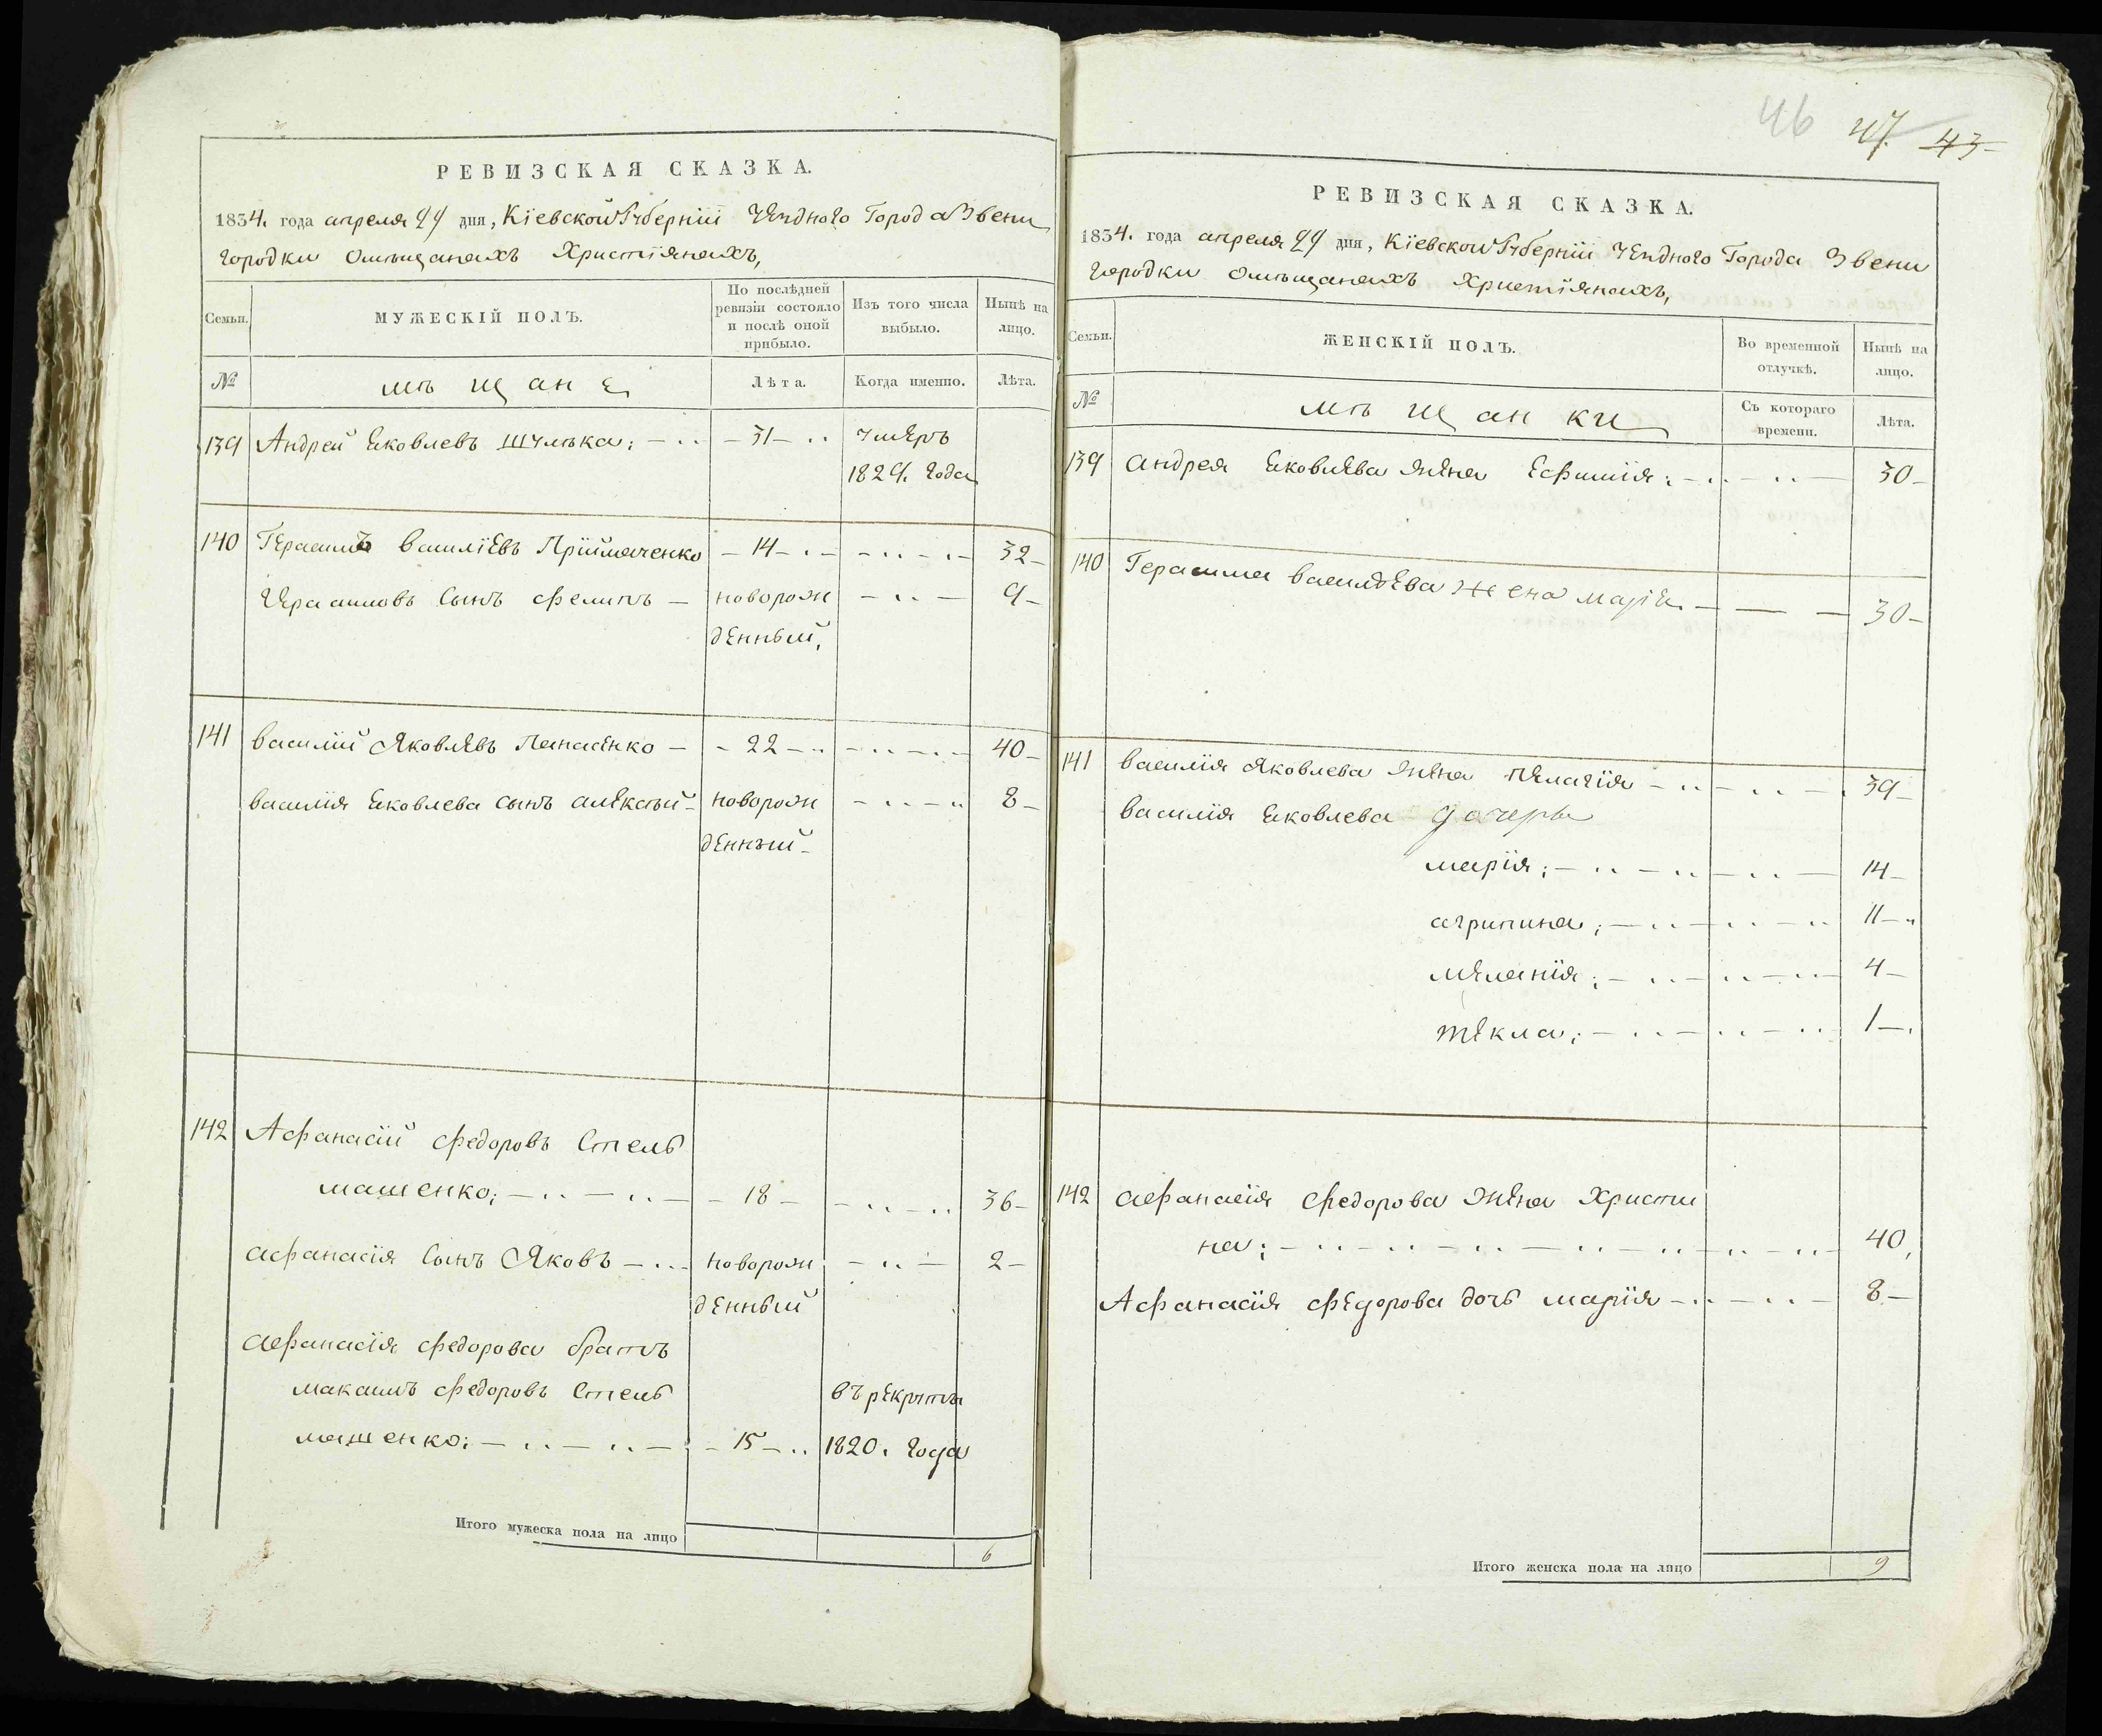 РЕВИЗСКАЯ СКАЗКА.
1834. года апреля 29 дня, Кїевской Губернїи Уезднаго Города Звени
городки омѣщанахъ Христїянахъ,
Семьи.
МУЖЕСКІЙ ПОЛЪ.
По послѣдней ревизіи состояло и послѣ оной прибыло.
Изъ того числа выбыло.
Нынѣ на лицо.
№
мѣщане
Лѣта.
Когда именно.
Лѣта.
139 Андрей Яковлевъ Шулѣка; 31 умеръ
1829. года
140 Герасимъ Василїевъ Прїймаченко 14 32
Герасимовъ Сынъ Филипъ новорож 9
денный,
141 Василїй Яковлевъ Панасенко 22 40
василїя Яковлева сынъ алексѣй новорож 8
денный
142 Афанасїй Федоровъ Стель
машенко; 18 36
афанасїя Сынъ Яковъ новорож 2
денный
афанасїя Федорова братъ
макаимъ Федоровъ Стель въ рекруты
машенко; 15 1820. года
Итого мужеска пола на лицо 6
46 47. 43
РЕВИЗСКАЯ СКАЗКА.
1834. года апреля 29 дня, Кїевской Губернїи Уезднаго Города Звени
городки омѣщанахъ Христїянахъ,
Семьи.
ЖЕНСКІЙ ПОЛЪ.
Во временной отлучкѣ.
Нынѣ на лицо.
№
мѣщанки
Съ котораго времени.
Лѣта.
139 андрея Яковлева жена Ефимїя; 30
140 Герасима василѣева жена марїя 30
141 василїя Яковлева жена пелагїя 39
василїя Яковлева дочеры
марїя; 14
агрипина; 11
меланїя; 4
текла; 1
142 афанасїя Федорова жена Христи
на; 40,
Афанасїя Федорова дочь марїя 8
Итого женска пола на лицо 9